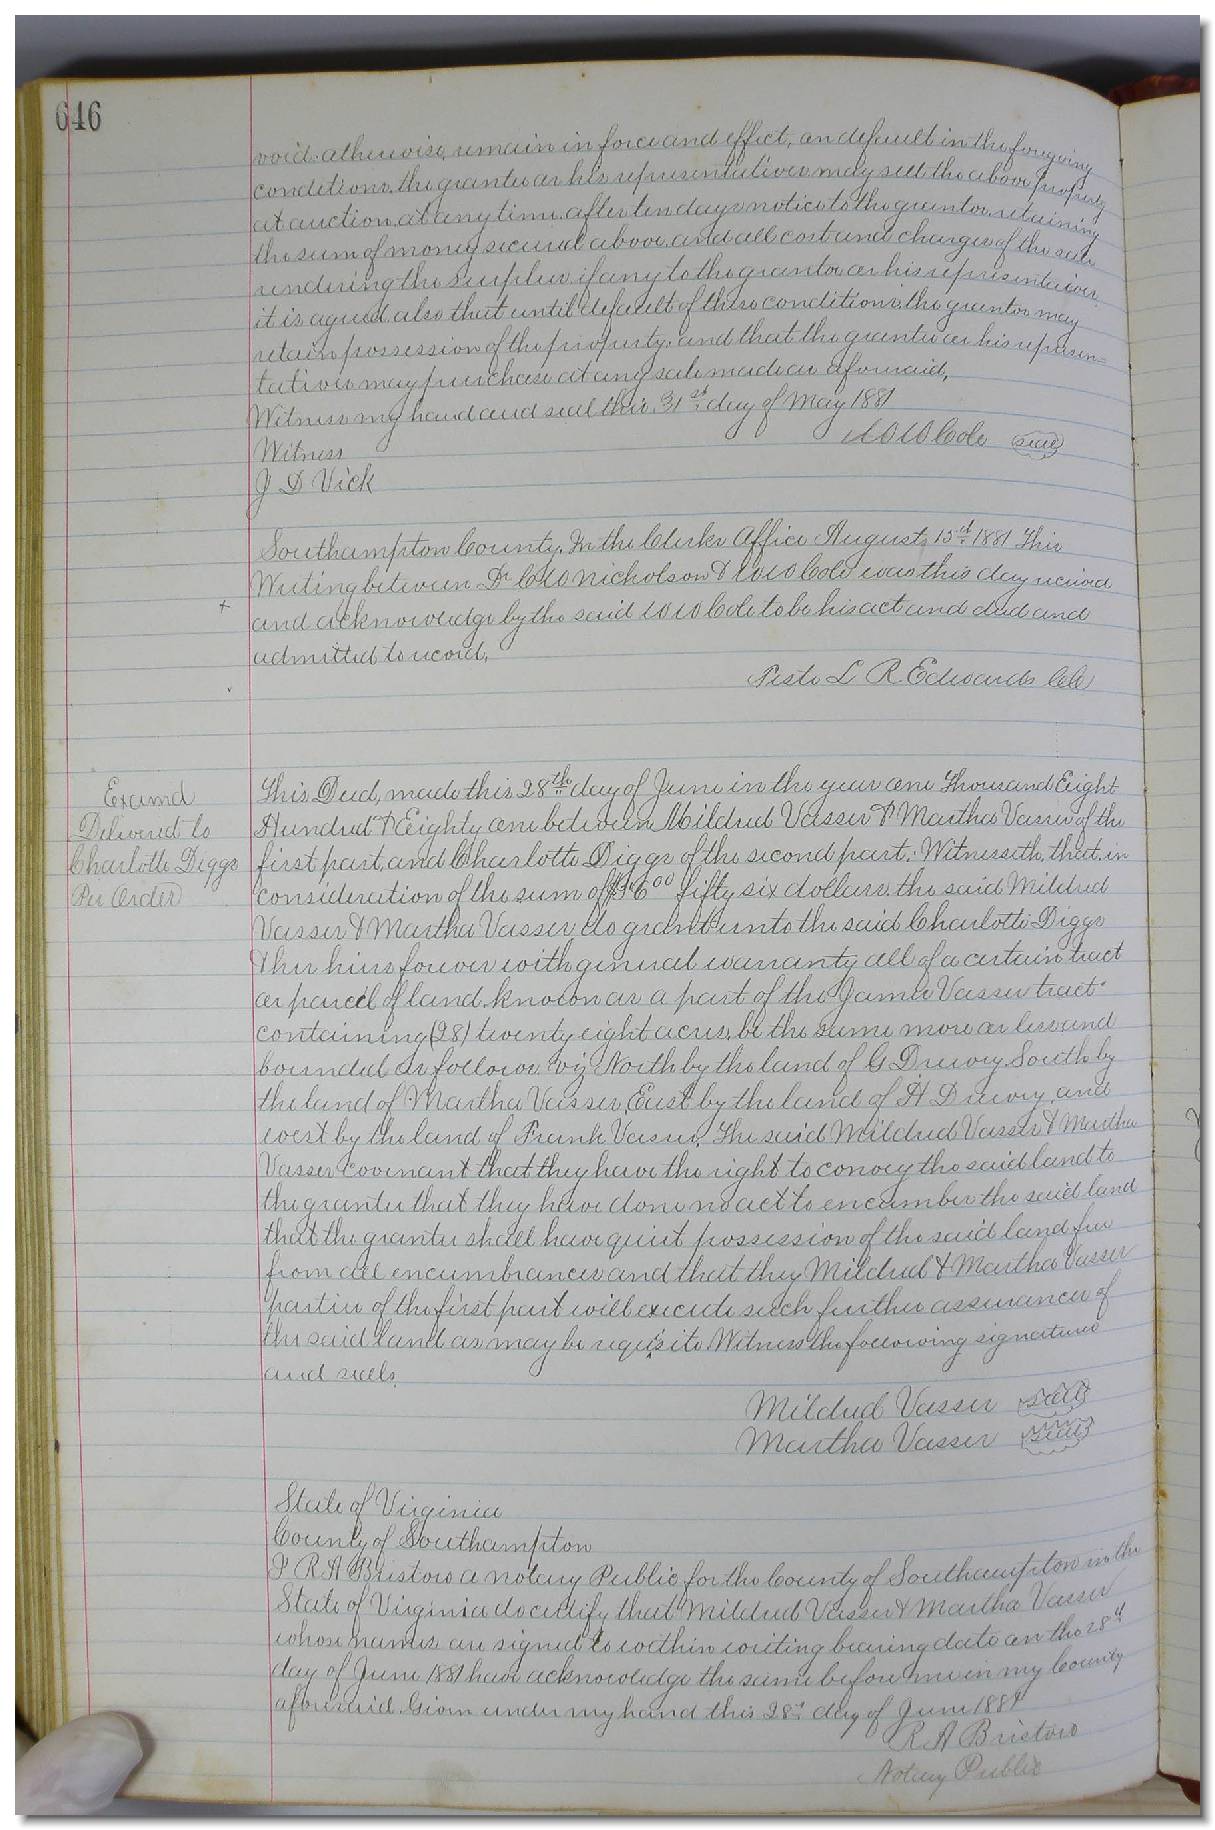 646
void otherwise remain in force and effect, on default in the foregoing
conditions the grantee or his representatives may sell the above property
at auction at any time after ten days notice to the grantor retaining
the sum of money secured above and all cost and charges of the sale
rendering the surplus if any to the grantor or his representatives
it is agreed also that until default of these conditions the grantor may
retain possession of the property, and that the grantee or his represen=
tatives may purchase at any sale made as aforesaid,
Witness my hand and seal this 31st day of May 1881
W W Cole seal
Witness
J D Vick
Southampton County. In the Clerks Office August 15th 1881 This
Writing between Dr C W Nicholson & W W Cole was this day received
+ and acknowledge by the said W W Cole to be his act and deed and
admitted to record,
Teste L R Edwards Clk
Examd
Delivered to
Charlotte Diggs
Per Order
This Deed, made this 28th day of June in the year one Thousand Eight
Hundred & Eighty one between Mildred Vasser & Martha Vasser of the
first part, and Charlotte Diggs of the second part: Witnesseth, that in
consideration of the sum of $56 00 fifty six dollars the said Mildred
Vasser & Martha Vasser do grant unto the said Charlotte Diggs
& her heirs forever with general warranty all of a certain tract
or parcel of land known as a part of the James Vasser tract
containing (28) twenty eight acres, be the same more or less and
bounded as follows viz North by the land of G Drewry South by
the land of Martha Vasser, East by the land of H Drewry and
west by the land of Frank Vasser. The said Mildred Vasser & Martha
Vasser covenant that they have the right to convey the said land to
the grantee that they have done no act to encumber the said land
that the grantee shall have quiet possession of the said land free
from all encumbrances and that they Mildred & Martha Vasser
parties of the first part will execute such further assurances of
the said land as may be requisite Witness the following signatures
and seals.
Mildred Vasser seal
Martha Vasser seal
State of Virginia
County of Southampton
I R A Bristow a notary Public for the County of Southampton in the
State of Virginia do certify that Mildred Vasser & Martha Vasser
whose names are signed to within writing bearing date on the 28th
day of June 1881 have acknowledge the same before me in my County
aforesaid. Given under my hand this 28th day of June 1881
R A Bristow
Notary Public